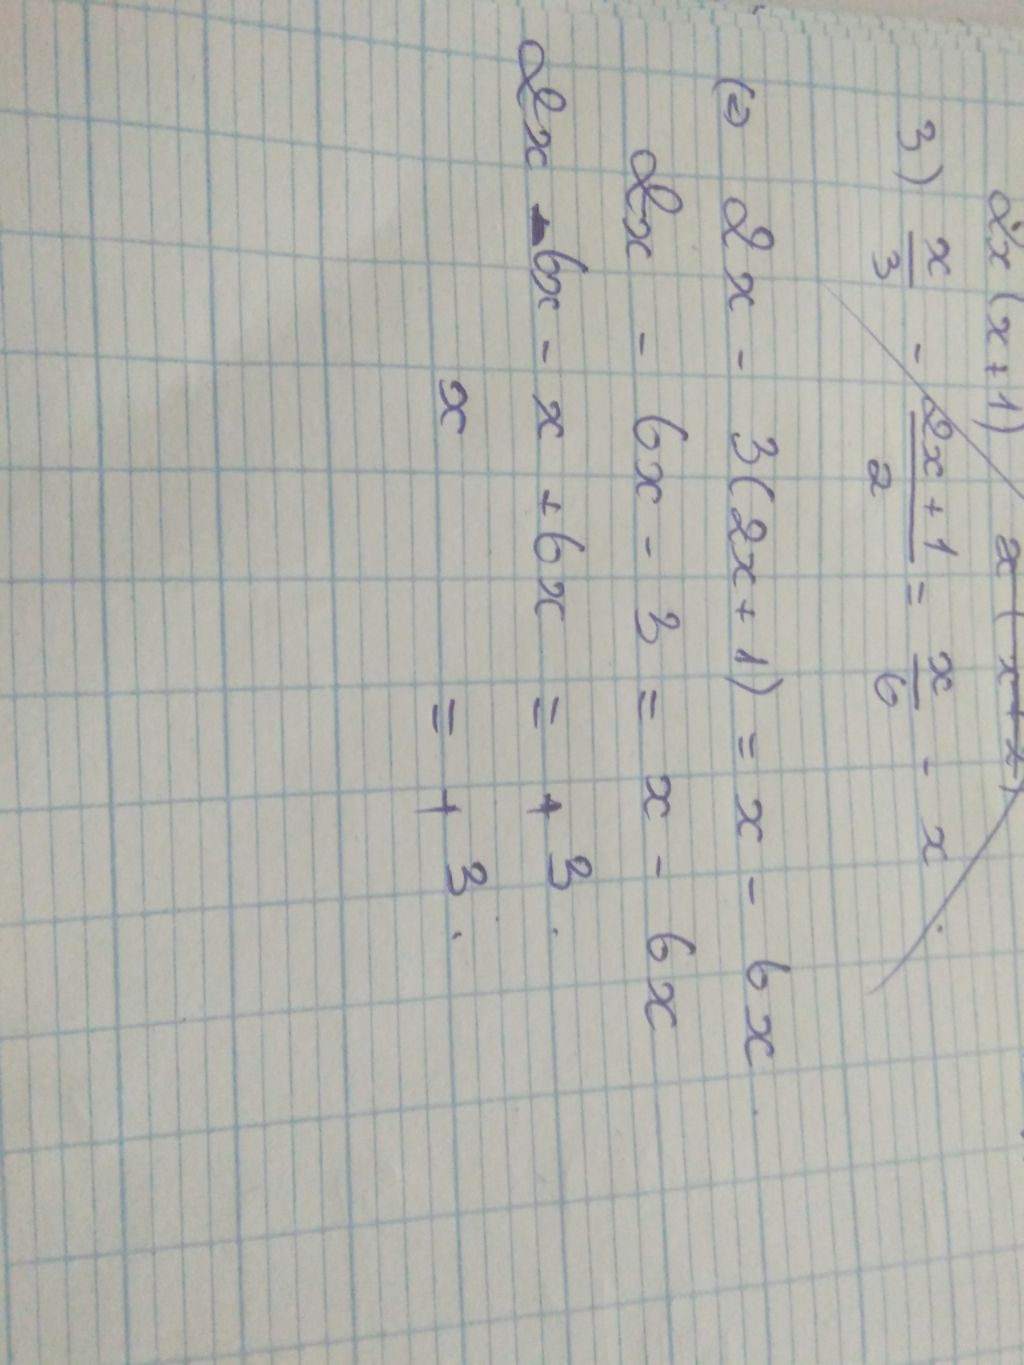 2x (x+1) x(x+2)
3) x/3 - 2x+1/2 = x/6 - x.
(=) 2x - 3(2x+1) = x - 6x
2x - 6x - 3 = x - 6x
2x - 6x - x + 6x = + 3.
x = + 3.